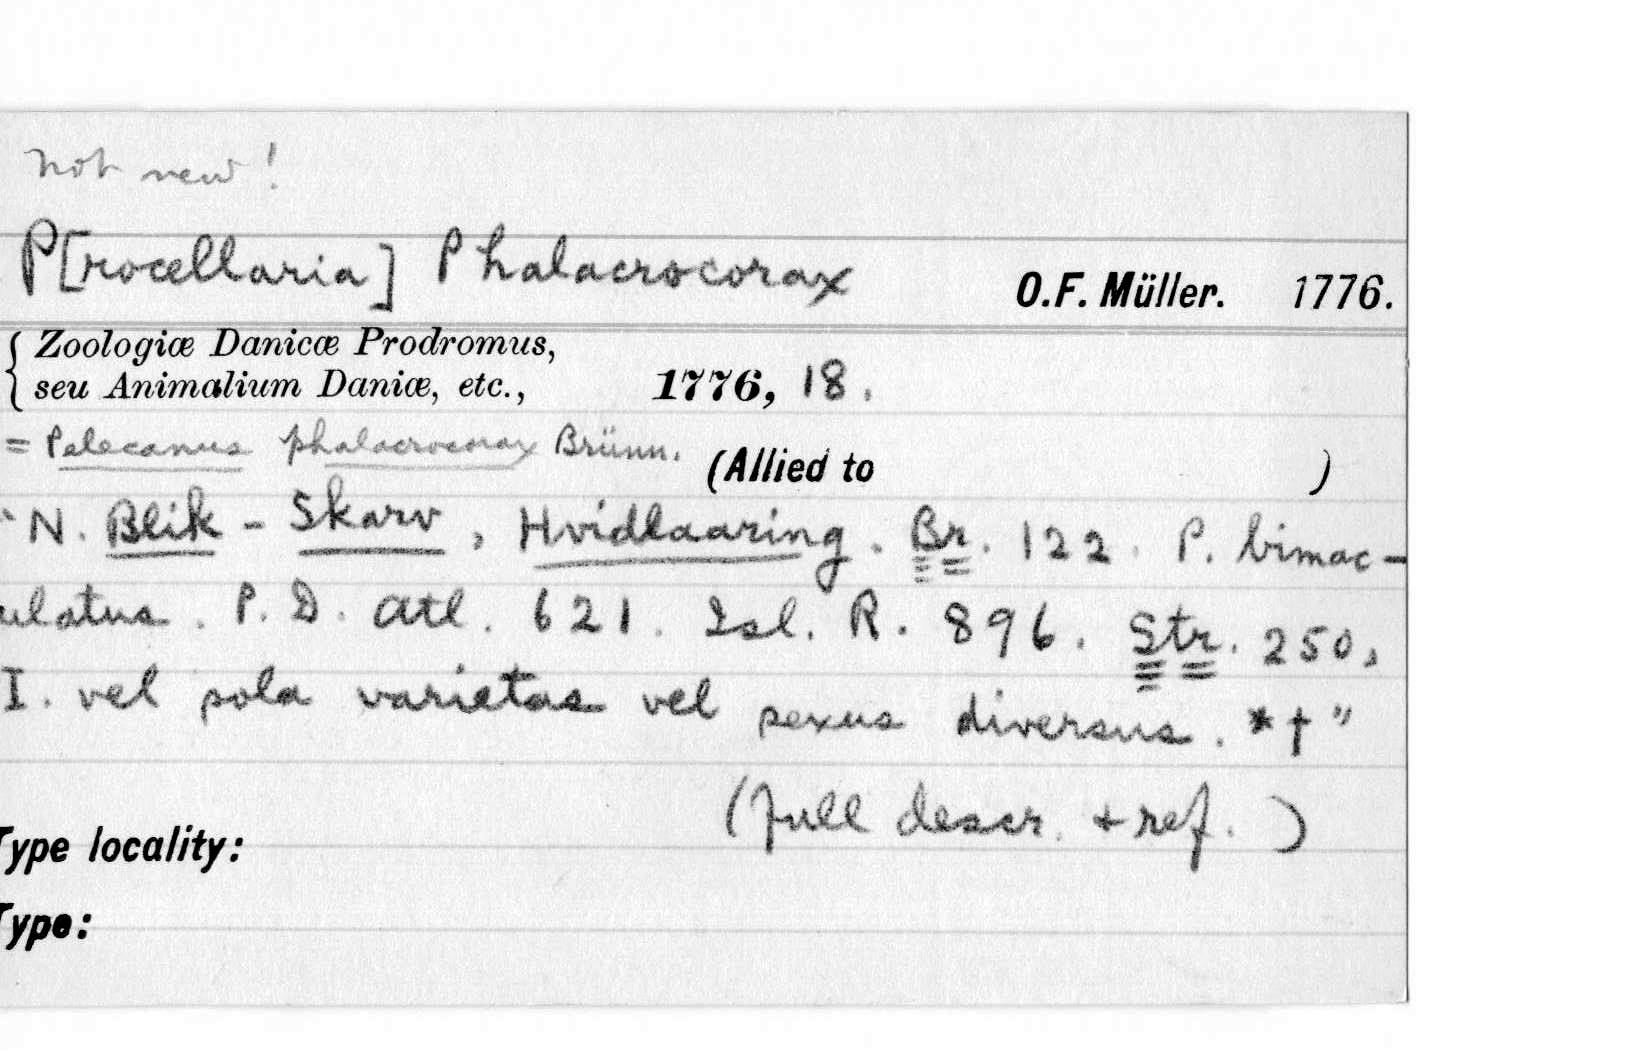 not new!
P[rocellaria] Phalacrocorax O.F. Müller. 1776.
{ Zoologiæ Danicæ Prodromus,
seu Animalium Daniæ, etc., 1776, 18.
= Pelecanus phalacrocorax Brünn. (Allied to )
"N. Blik-Skarv, Hvidlaaring. Br. 122. P. bimac-
ulatus. P. D. Atl. 621. Isl. R. 896. Str. 250,
I. vel sola varietas vel sexus diversus. *†"
(full descr. + ref. )
Type locality:
Type: